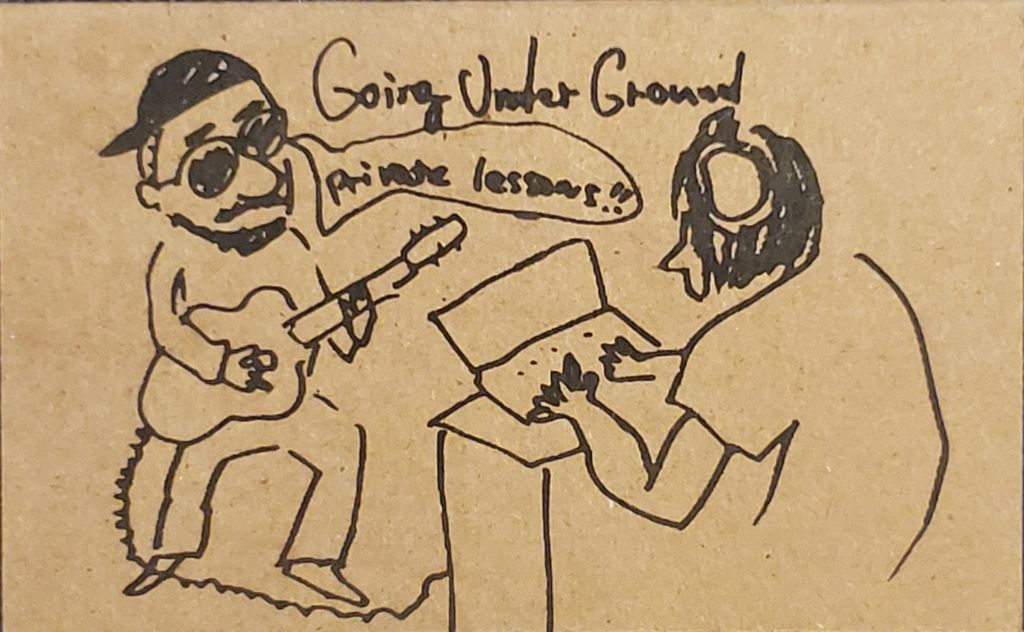 Going Under Ground
private lessons!!